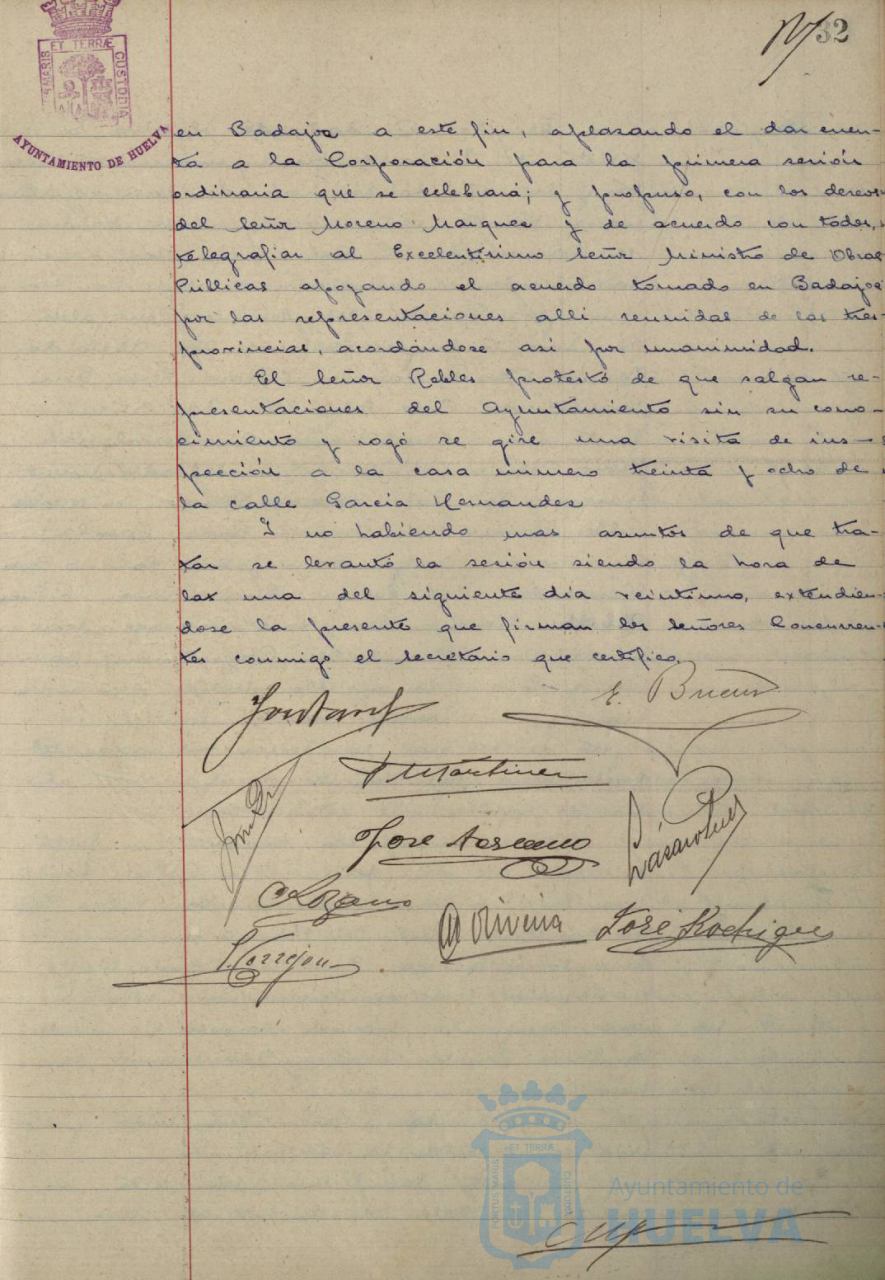 32
ET TERRÆ
MARIS
CUSTODIA
AYUNTAMIENTO DE HUELVA
en Badajoz a este fin, aplasando el dar cuen-
ta a la Corporación para la primera sesión
ordinaria que se celebrará; y propuso, con los deseos
del Señor Moreno Marquez y de acuerdo con todos,
telegrafiar al Excelentisimo Señor Ministro de Obras
Públicas apoyando el acuerdo tomado en Badajoz
por las representaciones alli reunidas de las tres
provincias, acordándose asi por unanimidad.
El Señor Robles protestó de que salgan re-
presentaciones del Ayuntamiento sin su cono-
cimiento y rogó se gire una visita de ins-
pección a la casa número treinta y ocho de
la calle García Hernandez
Y no habiendo mas asuntos de que tra-
tar se levantó la sesión siendo la hora de
las una del siguiente día veintiuno, extendien-
dose la presente que firman los señores Concurren-
tes conmigo el secretario que certifico.
E.
Martinez
José
Lozano
Oliveira José Rodriguez
PORTUS MARIS ET TERRÆ CUSTODIA
Ayuntamiento de
HUELVA